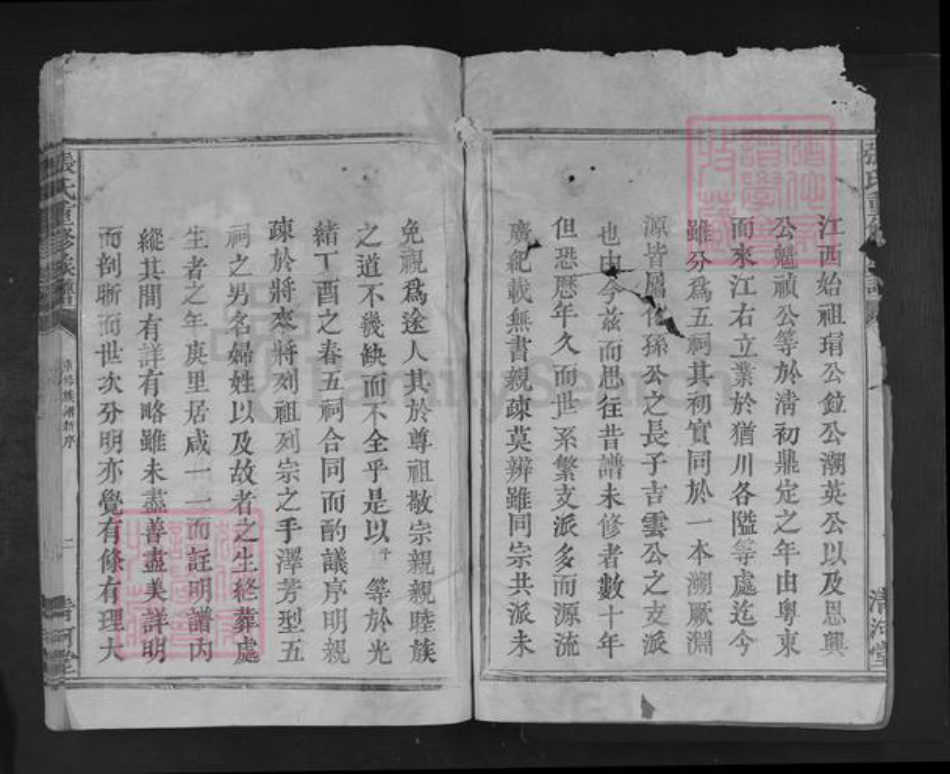 江西始祖琄公鉝公潮英公以及恩興
公魁禎公等於清初鼎定之年由粤東
而來江右立業於猶川各隘等處迄今
雖分爲五祠其初實同於一本溯厥淵
源皆屬化孫公之長子吉雲公之支派
也由今兹而思往昔譜未修者數十年
但恐歷年久而世系繁支派多而源流
廣紀載無書親疎莫辨雖同宗共派未
免視爲途人其於尊祖敬宗親親睦族
之道不幾缺而不全乎是以 等於光
緒丁酉之春五祠合同而酌議序明親
疎於將來將列祖列宗之手澤芳型五
祠之男名婦姓以及故者之生終葬處
生者之年庚里居咸一一而註明譜内
縱其間有詳有略雖未盡善盡美詳明
而剖晰而世次分明亦覺有條有理大
張氏重修族譜
重修族譜新序
二
清河堂
清河堂
FamilySearch